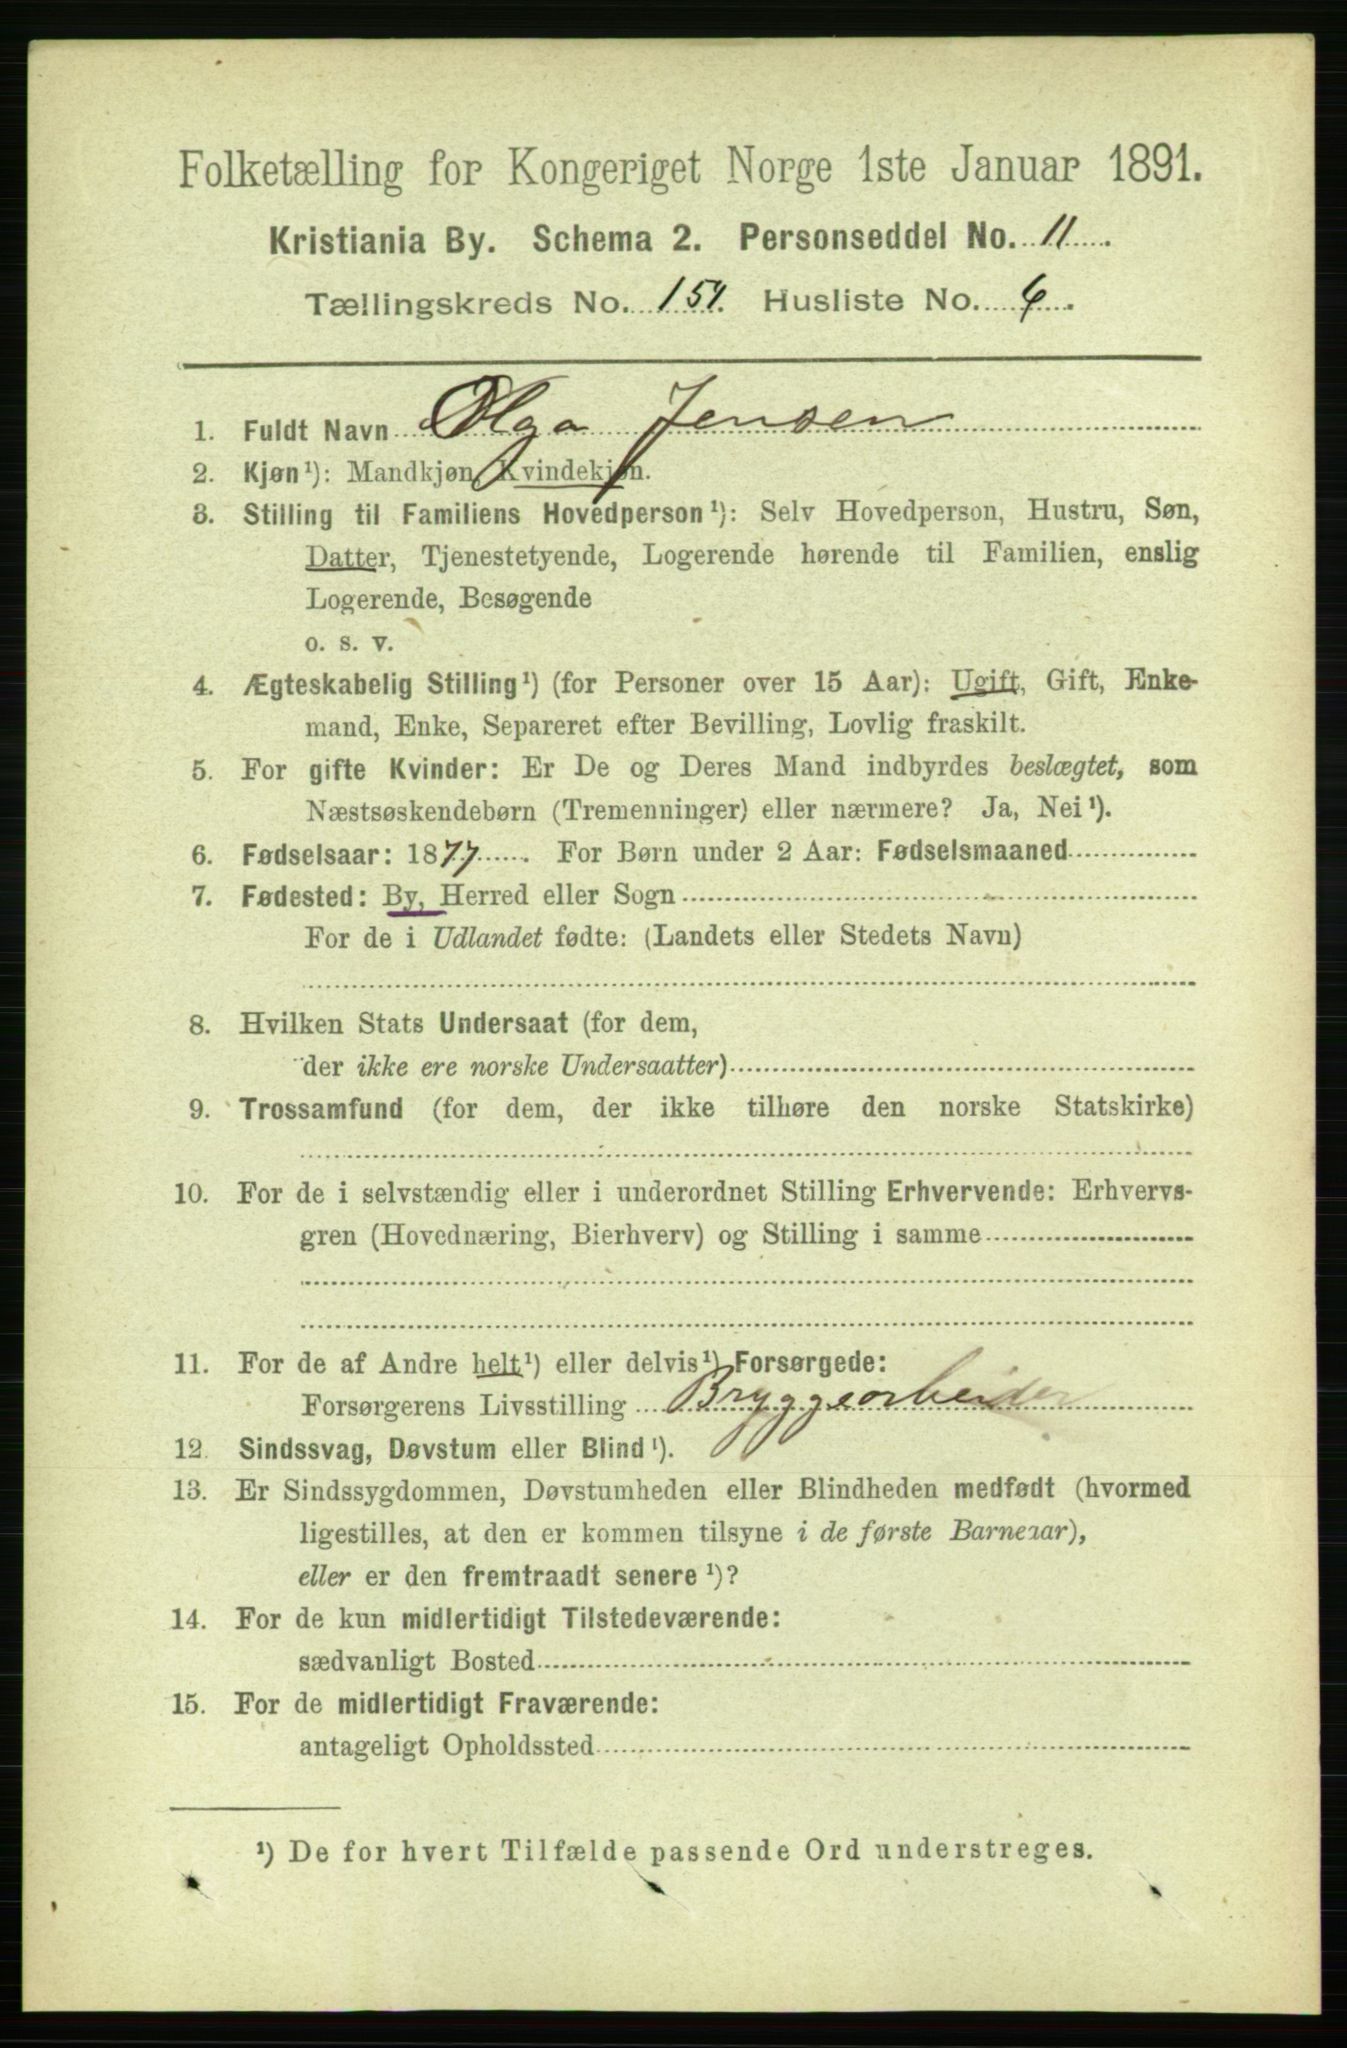 Folketælling for Kongeriget Norge 1ste Januar 1891.
Kristiania By. Schema 2. Personseddel No. 11.
Tællingskreds No. 154. Husliste No. 6.
1. Fuldt Navn Olga Jensen
2. Kjøn¹): Mandkjøn, Kvindekjøn.
3. Stilling til Familiens Hovedperson¹): Selv Hovedperson, Hustru, Søn,
Datter, Tjenestetyende, Logerende hørende til Familien, enslig
Logerende, Besøgende
o. s. v.
4. Ægteskabelig Stilling¹) (for Personer over 15 Aar): Ugift, Gift, Enke-
mand, Enke, Separeret efter Bevilling, Lovlig fraskilt.
5. For gifte Kvinder: Er De og Deres Mand indbyrdes beslægtet, som
Næstsøskendebørn (Tremenninger) eller nærmere? Ja, Nei¹).
6. Fødselsaar: 1877. For Børn under 2 Aar: Fødselsmaaned
7. Fødested: By, Herred eller Sogn
For de i Udlandet fødte: (Landets eller Stedets Navn)
8. Hvilken Stats Undersaat (for dem,
der ikke ere norske Undersaatter)
9. Trossamfund (for dem, der ikke tilhøre den norske Statskirke)
10. For de i selvstændig eller i underordnet Stilling Erhvervende: Erhvervs-
gren (Hovednæring, Bierhverv) og Stilling i samme
11. For de af Andre helt¹) eller delvis¹) Forsørgede:
Forsørgerens Livsstilling Bryggearbeider
12. Sindssvag, Døvstum eller Blind¹).
13. Er Sindssygdommen, Døvstumheden eller Blindheden medfødt (hvormed
ligestilles, at den er kommen tilsyne i de første Barneaar),
eller er den fremtraadt senere¹)?
14. For de kun midlertidigt Tilstedeværende:
sædvanligt Bosted
15. For de midlertidigt Fraværende:
antageligt Opholdssted
¹) De for hvert Tilfælde passende Ord understreges.